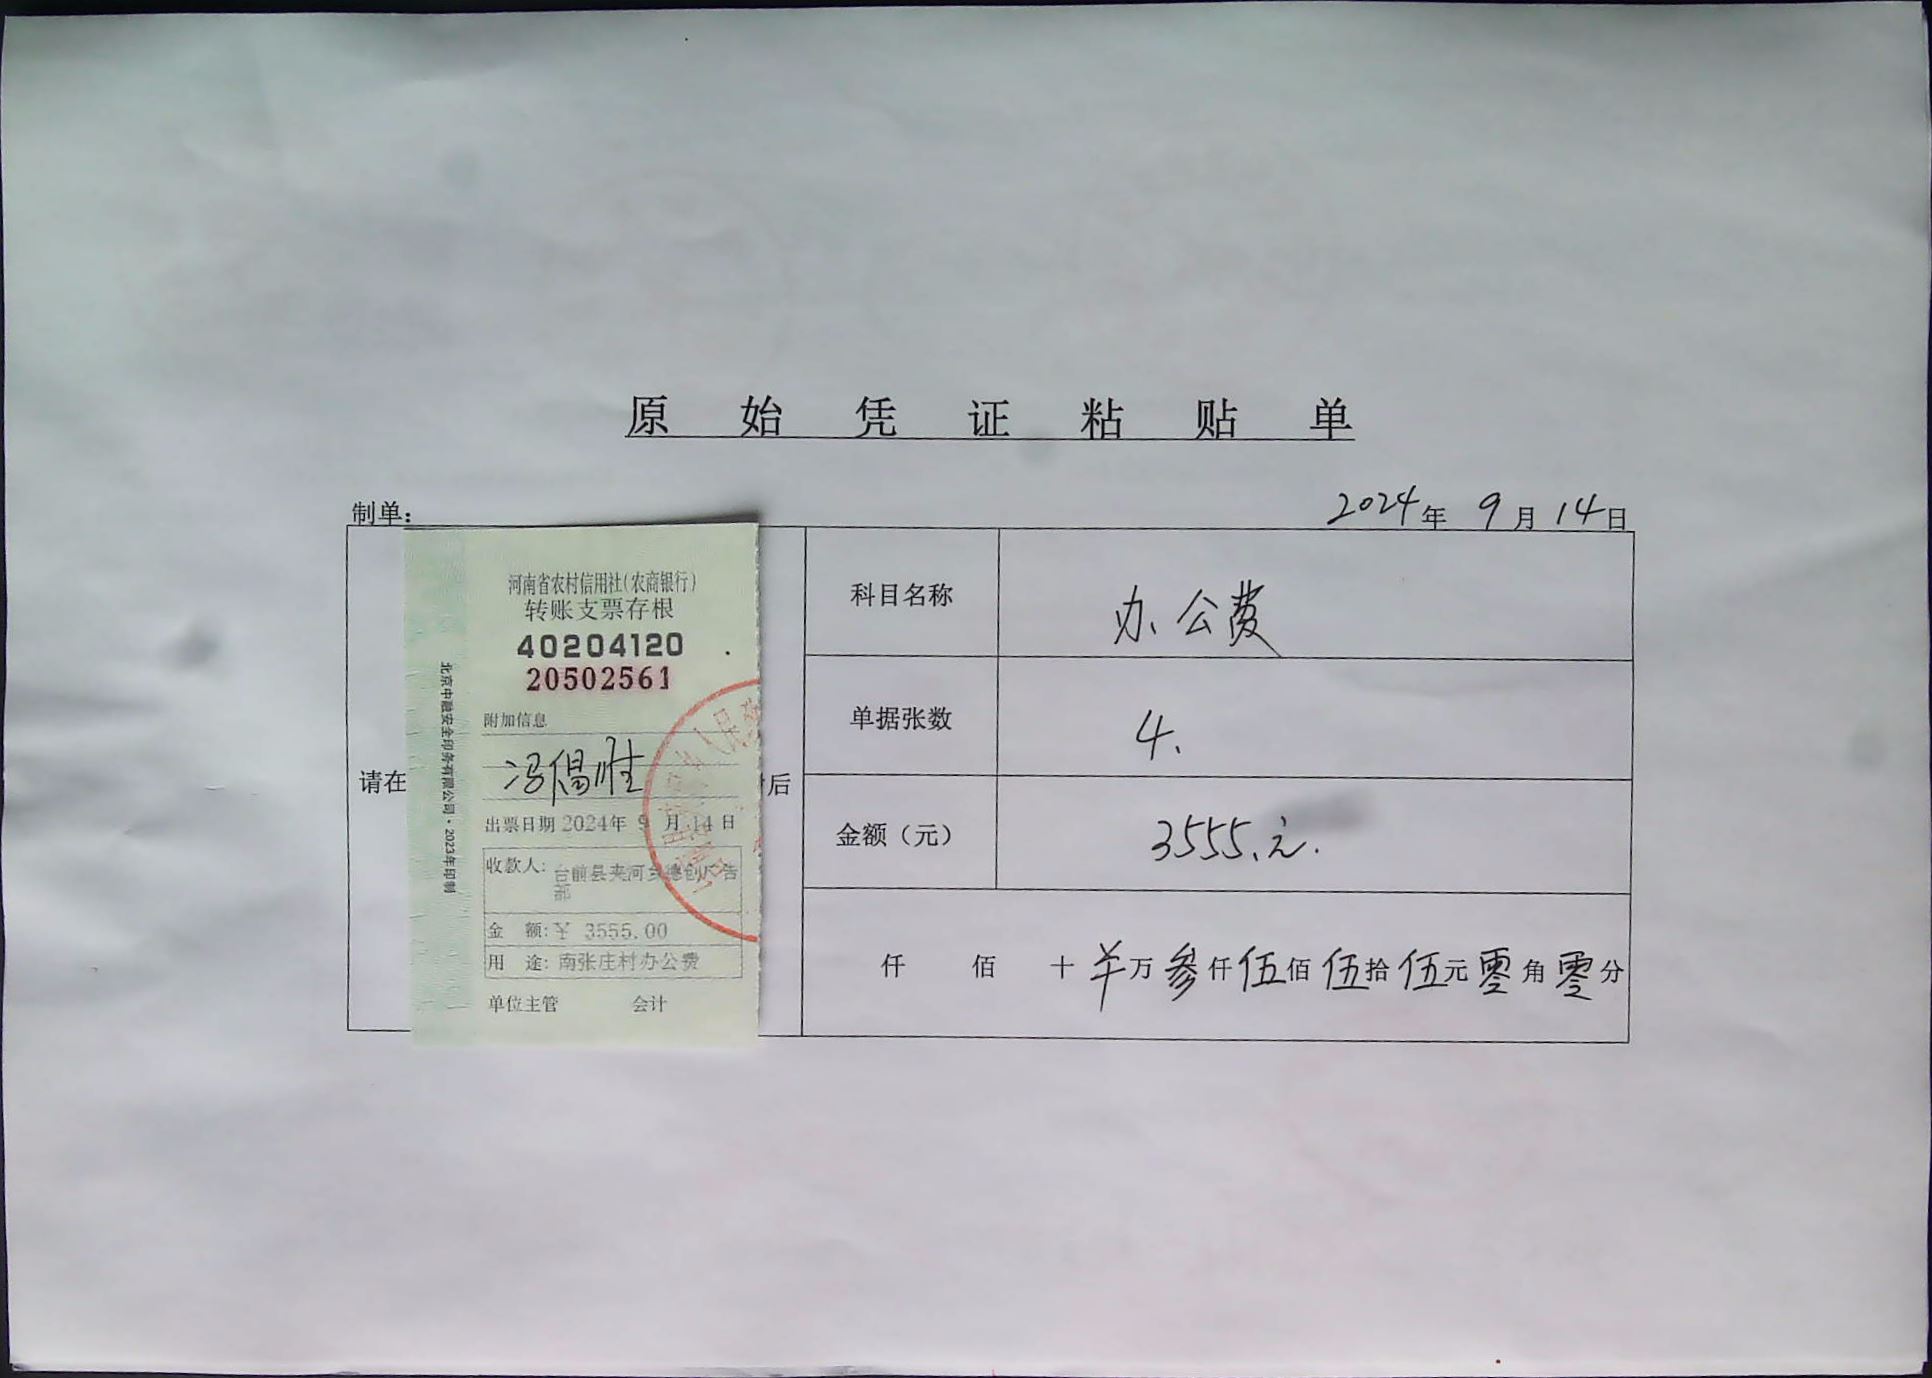 原始凭证粘贴单
制单：
2024年 9月14日
请在
后
河南省农村信用社(农商银行)
转账支票存根
40204120
20502561
附加信息
冯倡胜
出票日期 2024年 9 月 14 日
收款人: 台前县夹河乡德创广告
部
金 额: ¥ 3555.00
用 途: 南张庄村办公费
单位主管 会计
北京中融安全印务有限公司·2023年印制
科目名称 办公费
单据张数 4.
金额（元） 3555.元.
仟 佰 十 羊万 参仟伍佰伍拾伍元零角零分